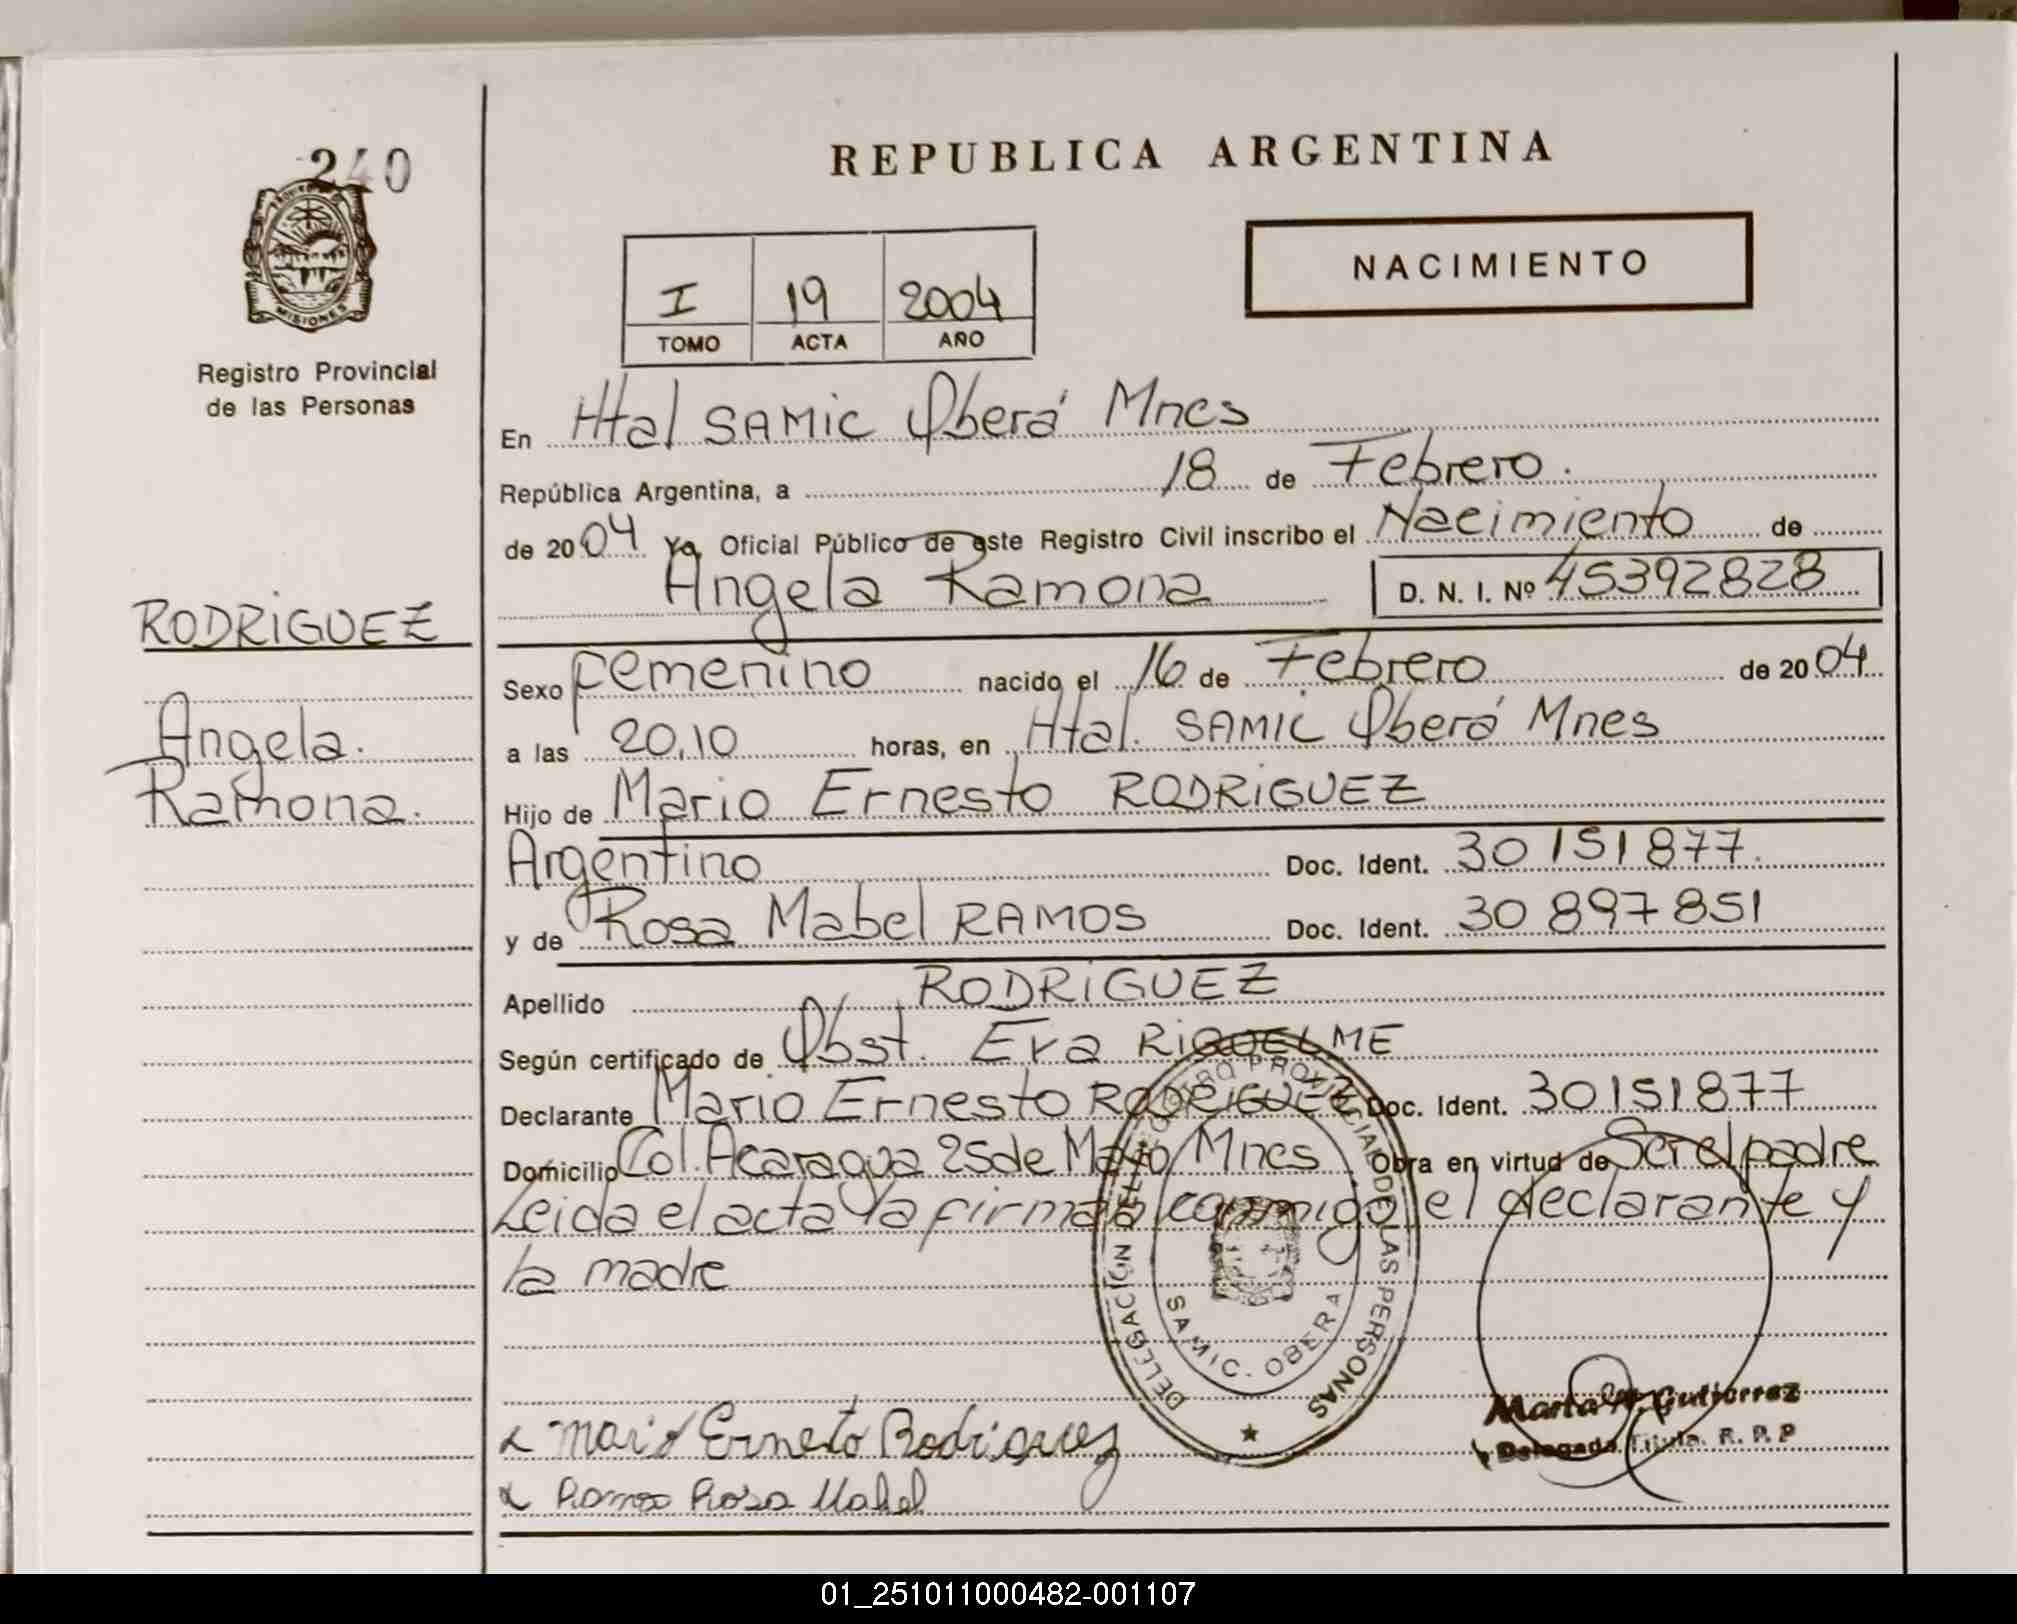 240
REPUBLICA ARGENTINA
NACIMIENTO
I 19 2004
TOMO ACTA AÑO
MISIONES
Registro Provincial
de las Personas
En Htal SAMIC Oberá Mnes
República Argentina, a 18 de Febrero.
de 2004 Yo, Oficial Público de este Registro Civil inscribo el Nacimiento de
Angela Ramona D. N. I. Nº 45392828
RODRIGUEZ
Angela.
Ramona.
Sexo femenino nacido el 16 de Febrero de 2004
a las 20,10 horas, en Htal. SAMIC Oberá Mnes
Hijo de Mario Ernesto RODRIGUEZ
Argentino Doc. Ident. 30151877.
y de Rosa Mabel RAMOS Doc. Ident. 30897851
Apellido RODRIGUEZ
Según certificado de Obst. Eva RIQUELME
Declarante Mario Ernesto RODRIGUEZ Doc. Ident. 30151877
Domicilio Col. Acaragua 25 de Mayo Mnes Obra en virtud de Ser el padre
Leida el acta la firman conmigo el declarante y
la madre
DELEGACION DEL REGISTRO PROVINCIAL DE LAS PERSONAS
SAMIC. OBERA
Mario Ernesto Rodriguez
Ramos Rosa Mabel
Marta Gutierrez
Delegada Titula. R. P. P
01_251011000482-001107